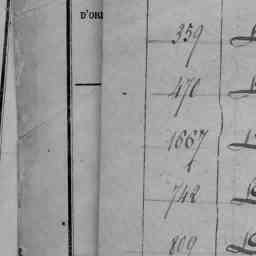 D'ORI
359
470
1667
742
809